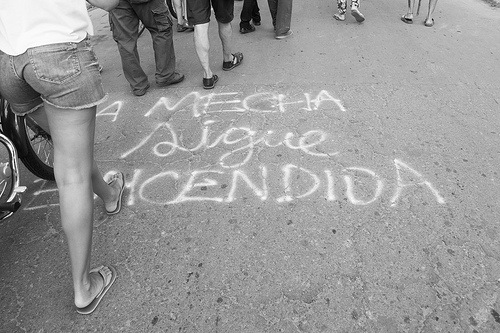 A MECHA
sigue
ENCENDIDA